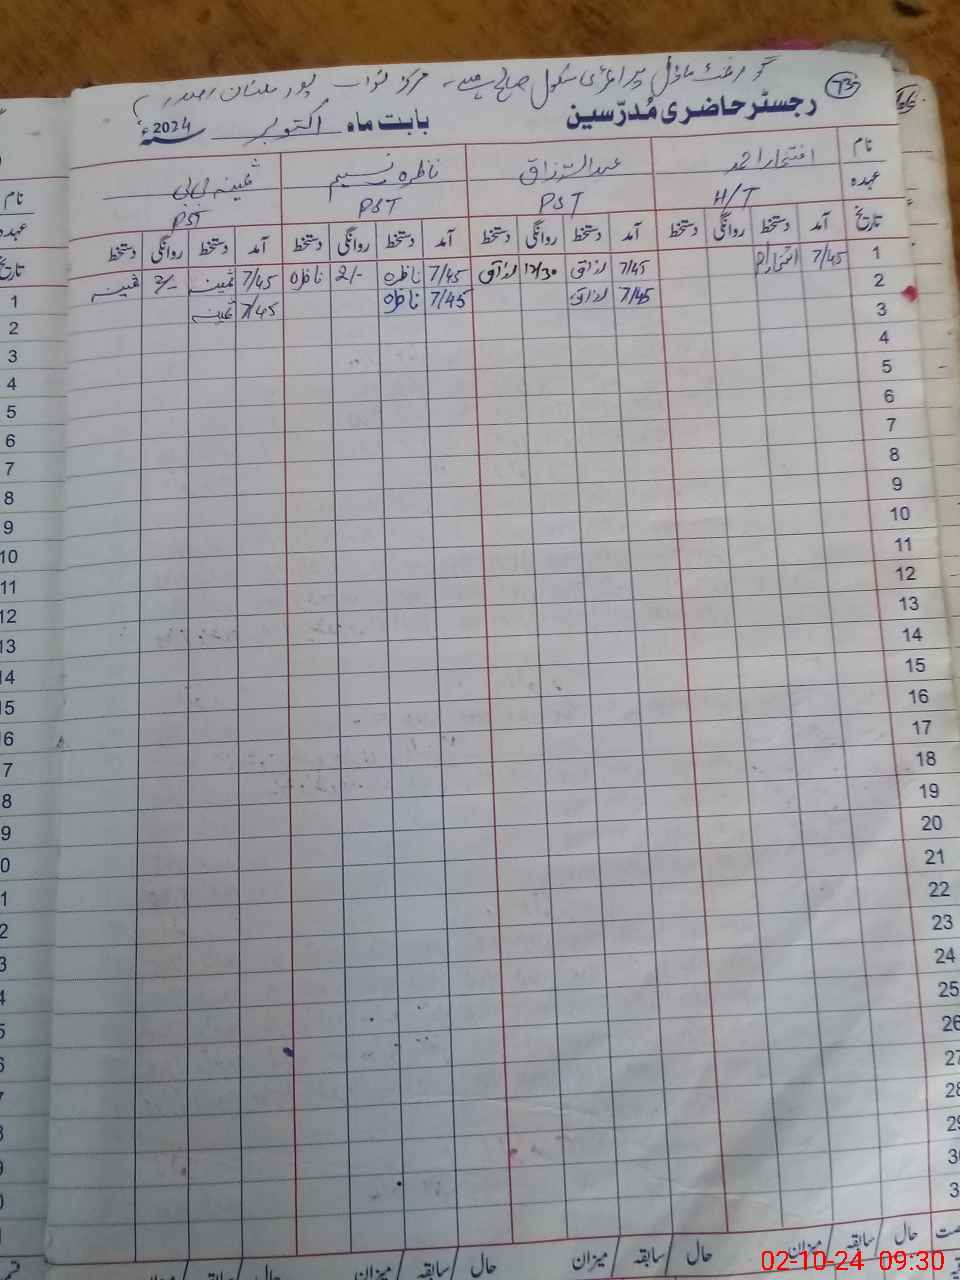 گورنمنٹ ماڈل پرائمری سکول مرکز نواب پور ملتان صدر
73
رجسٹر حاضری مُدرّسین بابت ماہ اکتوبر سنہ 2024ء
نام افتخار احمد عبدالرزاق ناظرہ نسیم ثمینہ بی بی
عہدہ H/T PST PST PST
تاریخ آمد دستخط روانگی دستخط آمد دستخط روانگی دستخط آمد دستخط روانگی دستخط آمد دستخط روانگی دستخط
1 7/45 افتخار 7/45 رزاق رزاق 7/45 ناظرہ 2/- ناظرہ 7/45 ثمینہ 2/- ثمینہ
2 7/45 رزاق 7/45 ناظرہ 7/45 ثمینہ
3
4
5
6
7
8
9
10
11
12
13
14
15
16
17
18
19
20
21
22
23
24
25
26
27
28
29
3
3
حال سابقہ میزان حال سابقہ میزان حال سابقہ میزان حال
نام
عہدہ
تاریخ
1
2
3
4
5
6
7
8
9
10
11
12
13
14
15
16
02-10-24 09:30